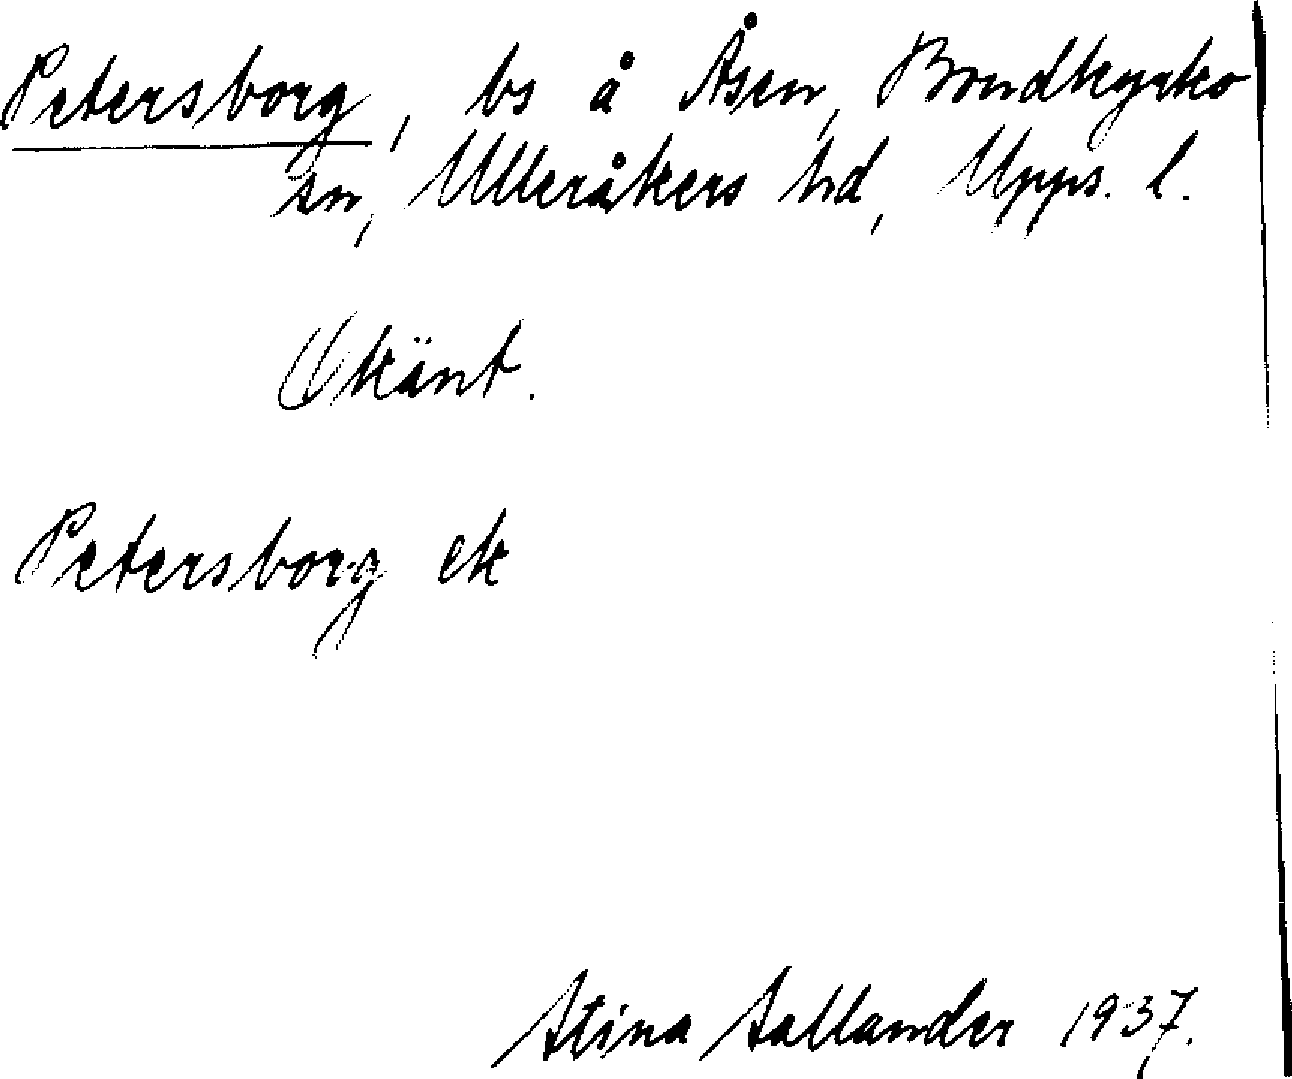 Petersborg, bs å Åsen, Bondkyrko
sn, Ulleråkers hd, Upps. l.
Okänt.
Petersborg ek
Stina Sallander 1937.